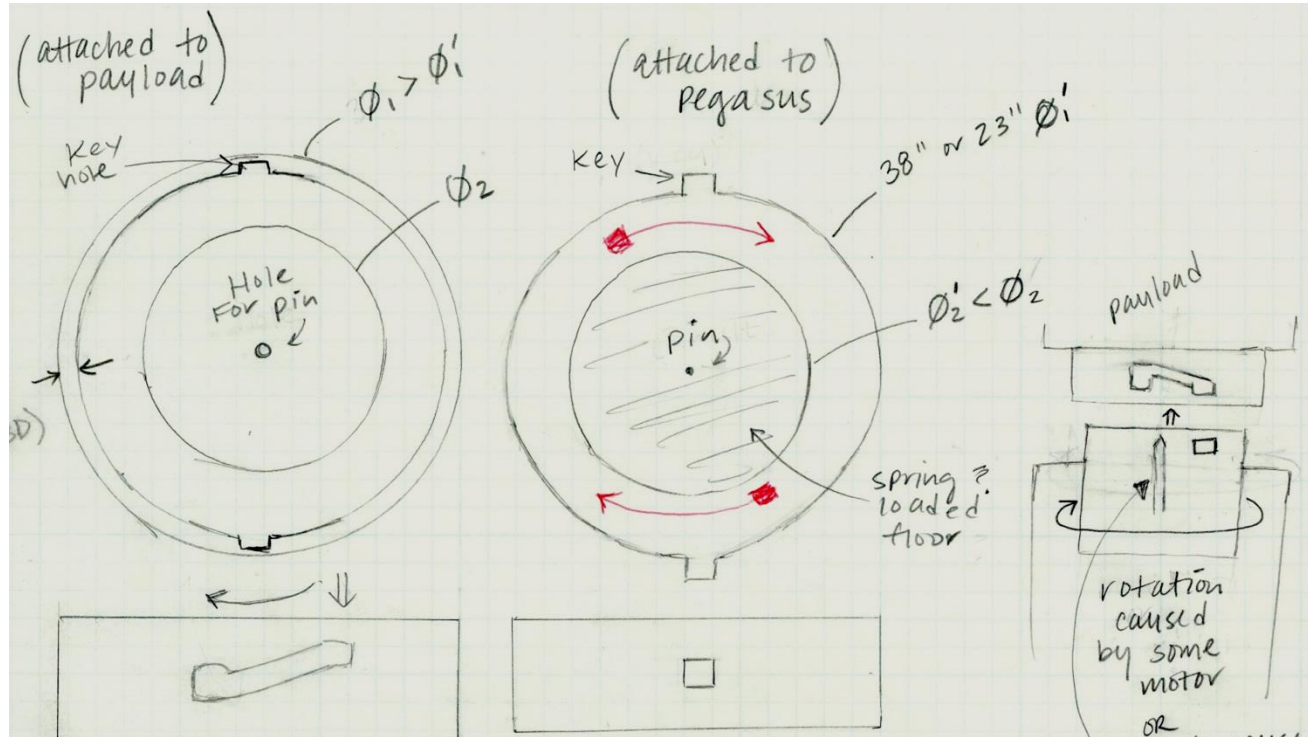 (attached to
payload)
Key
hole
Ø₁ > Ø₁'
Ø₂
Hole
For pin
(attached to
pegasus)
Key
38" or 23" Ø₁'
pin
Ø₂' < Ø₂
spring
loaded
floor
payload
rotation
caused
by some
motor
OR